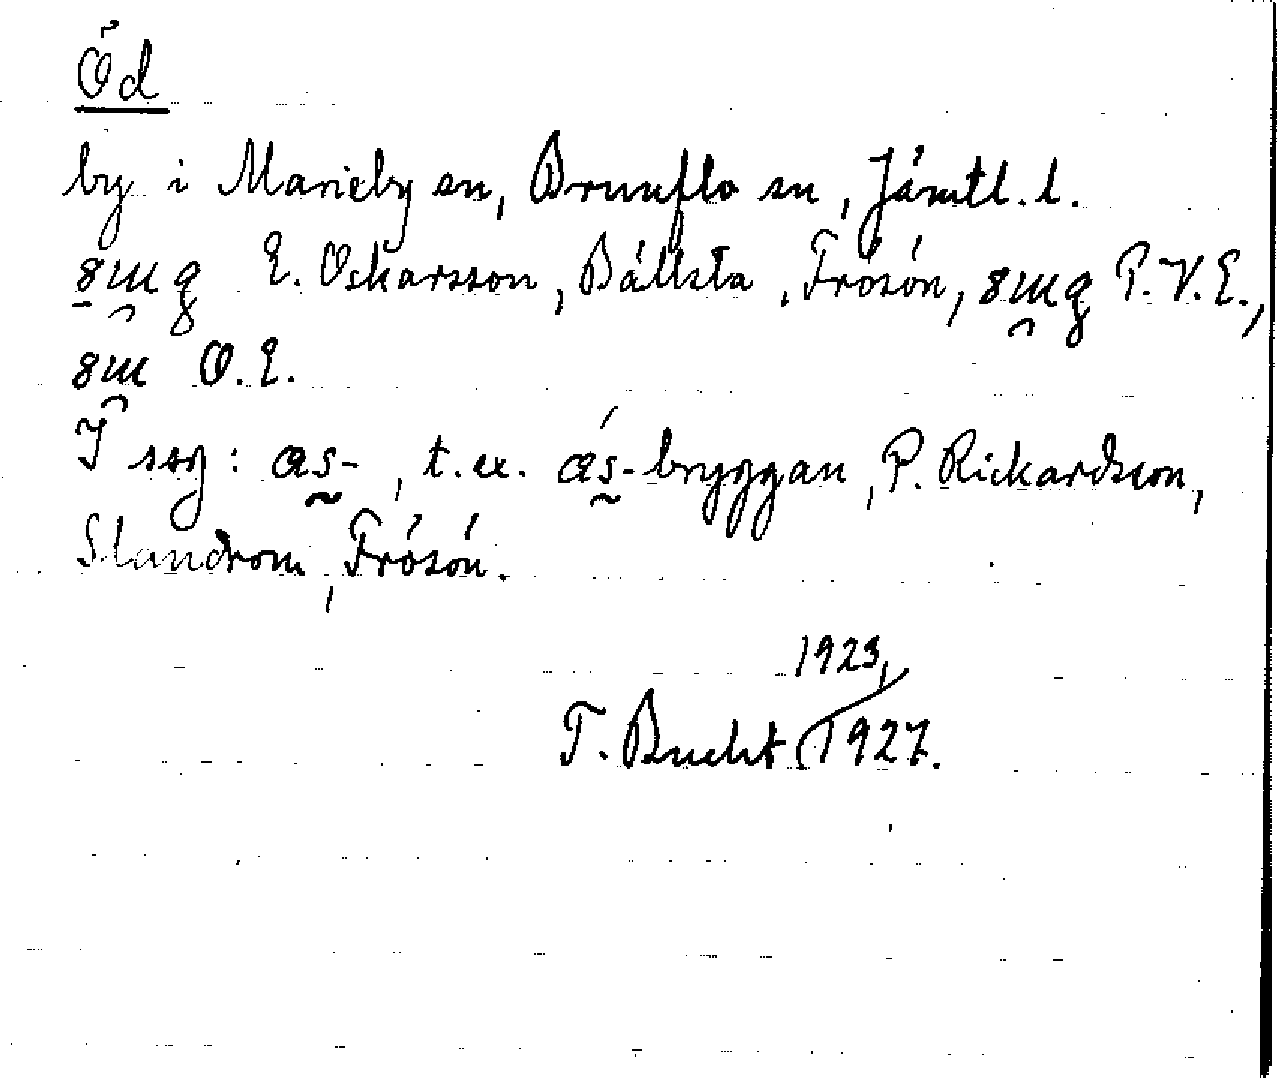 Öd
by i Marieby sn, Brunflo sn, Jämtl. l.
E. Oskarsson, Bällsta, Frösön, P.V.E.,
O.E.
I ssg: æs-, t.ex. æ´s-bryggan, P. Rickardsson,
Slandrom, Frösön.
1923,
T. Bucht 1927.